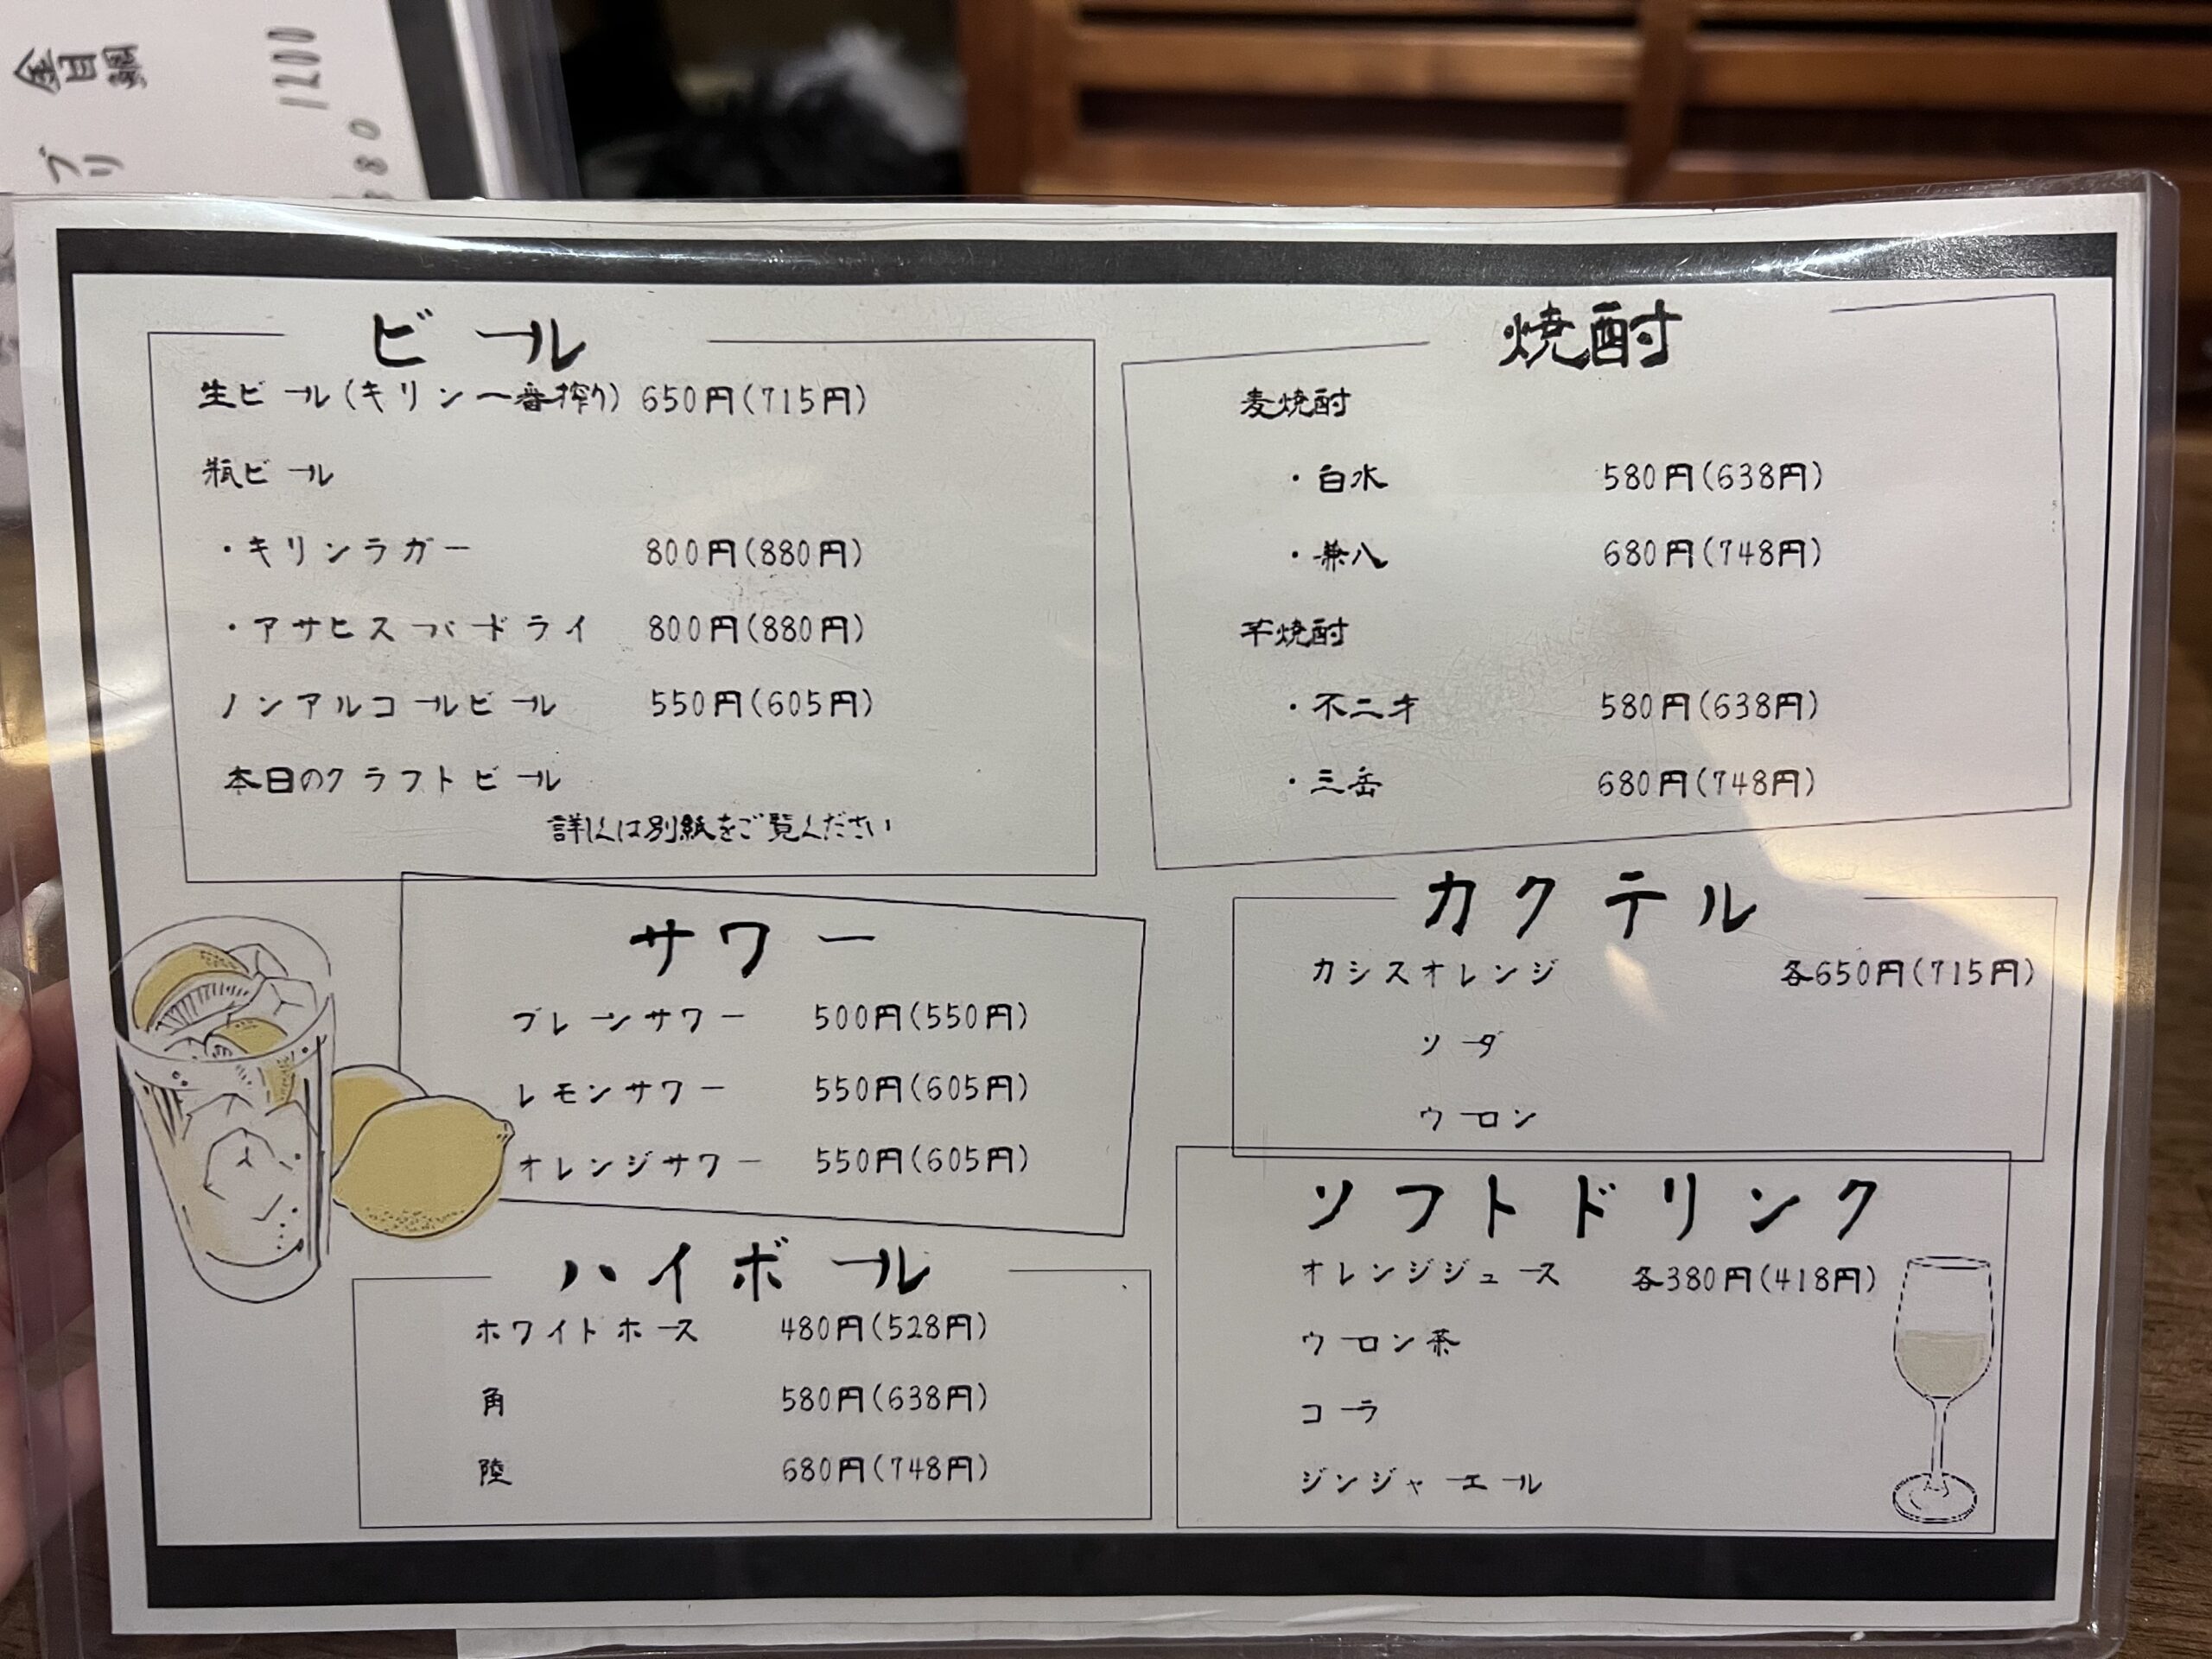 金目鯛 1200
ブリ
ビール
生ビール(キリン一番搾り) 650円(715円)
瓶ビール
・キリンラガー 800円(880円)
・アサヒスーパードライ 800円(880円)
ノンアルコールビール 550円(605円)
本日のクラフトビール
詳しくは別紙をご覧ください
焼酎
麦焼酎
・白水 580円(638円)
・兼八 680円(748円)
芋焼酎
・不二才 580円(638円)
・三岳 680円(748円)
サワー
プレーンサワー 500円(550円)
レモンサワー 550円(605円)
オレンジサワー 550円(605円)
カクテル
カシスオレンジ 各650円(715円)
ソーダ
ウーロン
ハイボール
ホワイトホース 480円(528円)
角 580円(638円)
陸 680円(748円)
ソフトドリンク
オレンジジュース 各380円(418円)
ウーロン茶
コーラ
ジンジャーエール